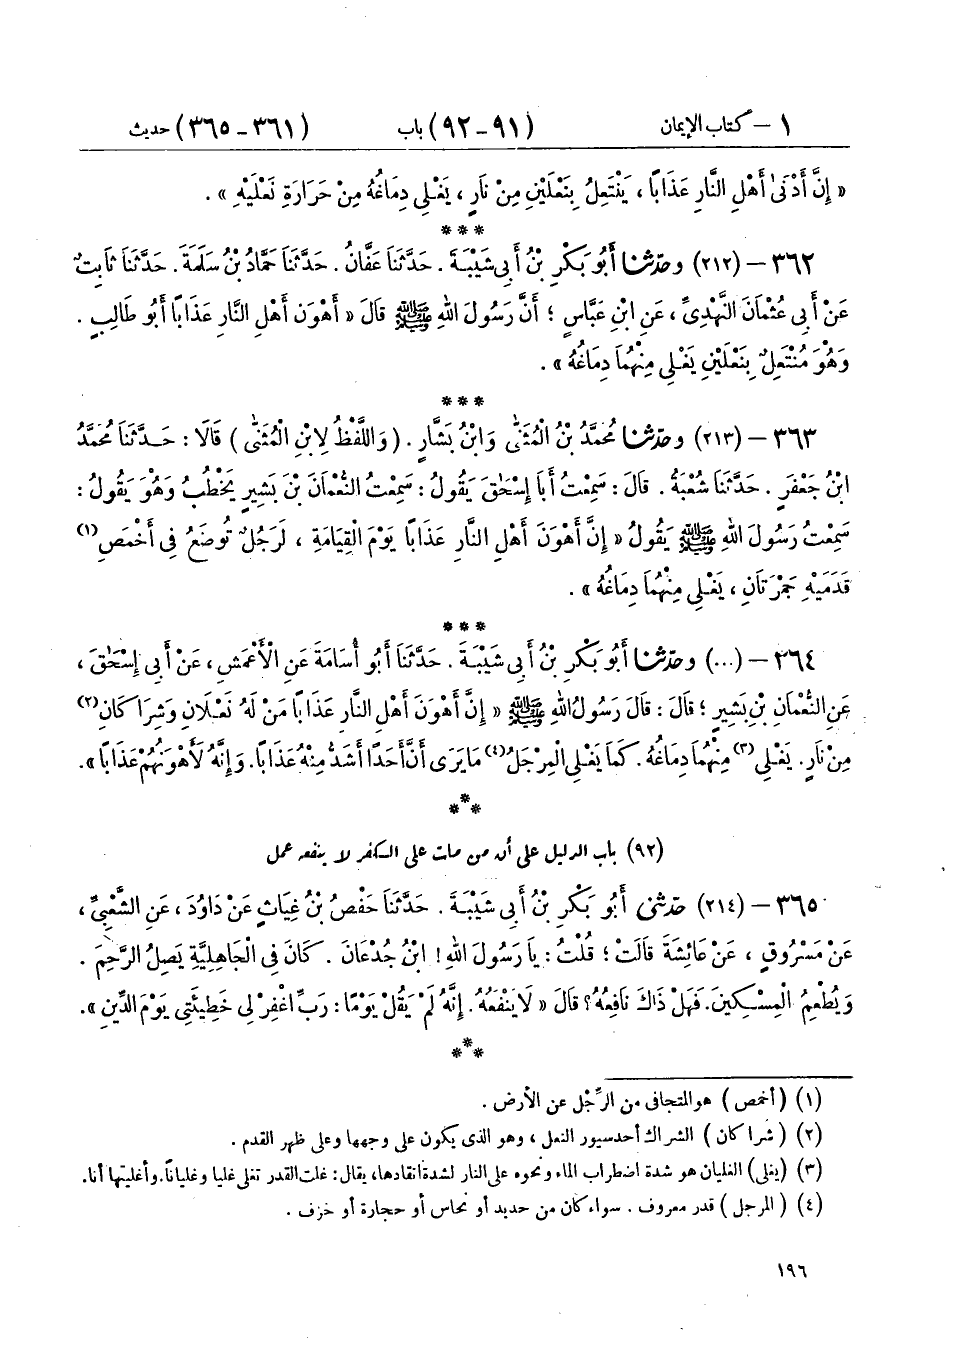 ١ – كتاب الإيمان (٩١-٩٢) باب (٣٦١-٣٦٥) حديث
« إِنَّ أَدْنَىٰ أَهْلِ النَّارِ عَذَابًا ، يَنْتَعِلُ بِنَعْلَيْنِ مِنْ نَارٍ ، يَغْلِي دِمَاغُهُ مِنْ حَرَارَةِ نَعْلَيْهِ » .
***
٣٦٢ – (٢١٢) وحدّثنا أَبُو بَكْرِ بْنُ أَبِي شَيْبَةَ . حَدَّثَنَا عَفَّانُ . حَدَّثَنَا حَمَّادُ بْنُ سَلَمَةَ . حَدَّثَنَا ثَابِتٌ
عَنْ أَبِي عُثْمَانَ النَّهْدِيِّ ، عَنِ ابْنِ عَبَّاسٍ ؛ أَنَّ رَسُولَ اللهِ ﷺ قَالَ « أَهْوَنُ أَهْلِ النَّارِ عَذَابًا أَبُو طَالِبٍ .
وَهُوَ مُنْتَعِلٌ بِنَعْلَيْنِ يَغْلِي مِنْهُمَا دِمَاغُهُ » .
***
٣٦٣ – (٢١٣) وحدّثنا مُحَمَّدُ بْنُ الْمُثَنَّى وَابْنُ بَشَّارٍ . ( وَاللَّفْظُ لِابْنِ الْمُثَنَّى ) قَالَا : حَدَّثَنَا مُحَمَّدُ
ابْنُ جَعْفَرٍ . حَدَّثَنَا شُعْبَةُ . قَالَ : سَمِعْتُ أَبَا إِسْحَٰقَ يَقُولُ : سَمِعْتُ النُّعْمَانَ بْنَ بَشِيرٍ يَخْطُبُ وَهُوَ يَقُولُ :
سَمِعْتُ رَسُولَ اللهِ ﷺ يَقُولُ « إِنَّ أَهْوَنَ أَهْلِ النَّارِ عَذَابًا يَوْمَ الْقِيَامَةِ ، لَرَجُلٌ تُوضَعُ فِي أَخْمَصِ (١)
قَدَمَيْهِ جَمْرَتَانِ ، يَغْلِي مِنْهُمَا دِمَاغُهُ » .
***
٣٦٤ – (...) وحدّثنا أَبُو بَكْرِ بْنُ أَبِي شَيْبَةَ . حَدَّثَنَا أَبُو أُسَامَةَ عَنِ الْأَعْمَشِ ، عَنْ أَبِي إِسْحَٰقَ ،
عَنِ النُّعْمَانِ بْنِ بَشِيرٍ ؛ قَالَ : قَالَ رَسُولُ اللهِ ﷺ « إِنَّ أَهْوَنَ أَهْلِ النَّارِ عَذَابًا مَنْ لَهُ نَعْلَانِ وَشِرَاكَانِ (٢)
مِنْ نَارٍ . يَغْلِي (٣) مِنْهُمَا دِمَاغُهُ . كَمَا يَغْلِي الْمِرْجَلُ (٤) مَا يَرَى أَنَّ أَحَدًا أَشَدُّ مِنْهُ عَذَابًا . وَإِنَّهُ لَأَهْوَنُهُمْ عَذَابًا » .
***
(٩٢) باب الدليل على أن من مات على الكفر لا ينفعه عمل
٣٦٥ – (٢١٤) حدّثني أَبُو بَكْرِ بْنُ أَبِي شَيْبَةَ . حَدَّثَنَا حَفْصُ بْنُ غِيَاثٍ عَنْ دَاوُدَ ، عَنِ الشَّعْبِيِّ ،
عَنْ مَسْرُوقٍ ، عَنْ عَائِشَةَ قَالَتْ ؛ قُلْتُ : يَا رَسُولَ اللهِ ! ابْنُ جُدْعَانَ . كَانَ فِي الْجَاهِلِيَّةِ يَصِلُ الرَّحِمَ .
وَيُطْعِمُ الْمِسْكِينَ . فَهَلْ ذَاكَ نَافِعُهُ ؟ قَالَ « لَا يَنْفَعُهُ . إِنَّهُ لَمْ يَقُلْ يَوْمًا : رَبِّ اغْفِرْ لِي خَطِيئَتِي يَوْمَ الدِّينِ » .
***
(١) ( أخمص ) هو المتجافى من الرِّجْل عن الأرض .
(٢) ( شراكان ) الشراك أحد سيور النعل ، وهو الذى يكون على وجهها وعلى ظهر القدم .
(٣) (يغلى) الغليان هو شدة اضطراب الماء ونحوه على النار لشدة اتقادها، يقال: غلت القدر تغلى غليا وغليانًا. وأغليتها أنا.
(٤) ( المرجل ) قدر معروف . سواء كان من حديد أو نحاس أو حجارة أو خزف .
١٩٦